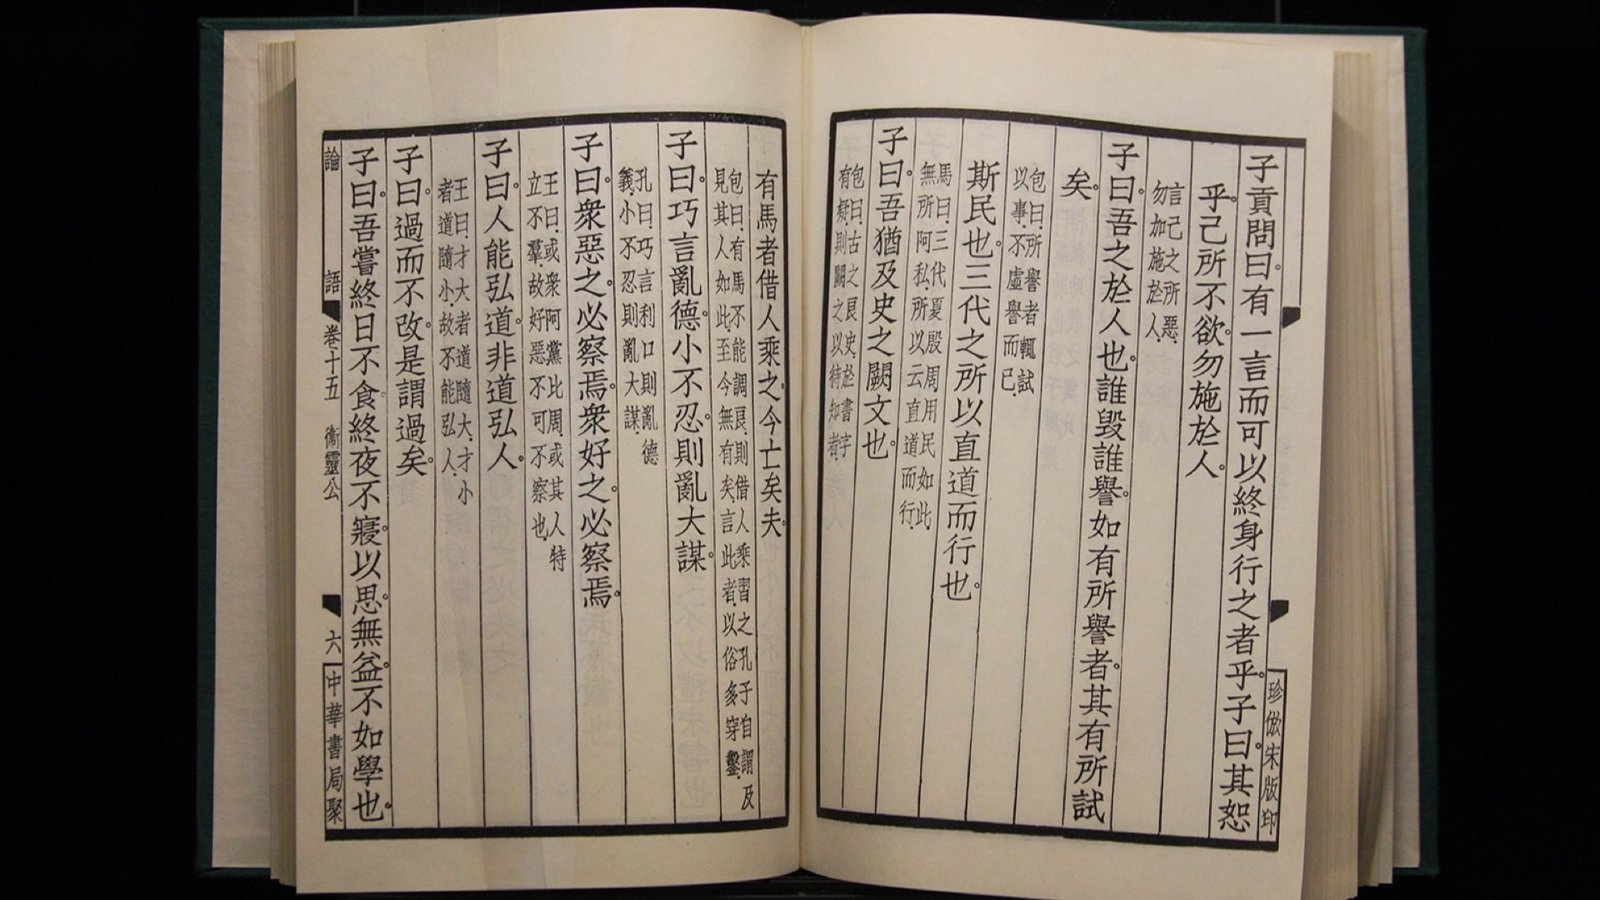 珍倣宋版印
子貢問曰。有一言而可以終身行之者乎。子曰。其恕
乎。己所不欲。勿施於人。
言己之所惡。
勿加施於人。
子曰。吾之於人也。誰毀誰譽。如有所譽者。其有所試
矣。
包曰。所譽者輒試
以事。不虛譽而已。
斯民也。三代之所以直道而行也。
馬曰。三代夏殷周。用民如此。
無所阿私。所以云直道而行。
子曰。吾猶及史之闕文也。
包曰。古之良史。於書字
有疑則闕之。以待知者。
有馬者借人乘之。今亡矣夫。
包曰。有馬不能調良。則借人乘習之。孔子自謂及
見其人如此。至今無有矣。言此者。以俗多穿鑿。
子曰。巧言亂德。小不忍。則亂大謀。
孔曰。巧言利口則亂德
義。小不忍則亂大謀。
子曰。衆惡之。必察焉。衆好之。必察焉。
王曰。或衆阿黨比周。或其人特
立不羣。故好惡不可不察也。
子曰。人能弘道。非道弘人。
王曰。才大者道隨大。才小
者道隨小。故不能弘人。
子曰。過而不改。是謂過矣。
子曰。吾嘗終日不食。終夜不寢。以思。無益。不如學也。
論語 卷十五 衞靈公 六 中華書局聚